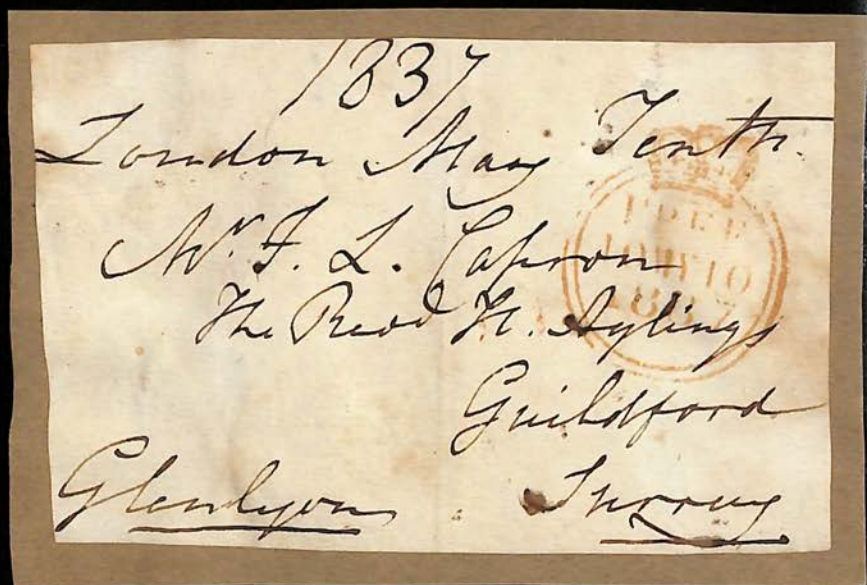 1837
London May Tenth.
Mr. F. L. Capron
The Revd H. Aylings
Guildford
Glenlyon Surrey
FREE
10MY10
1837